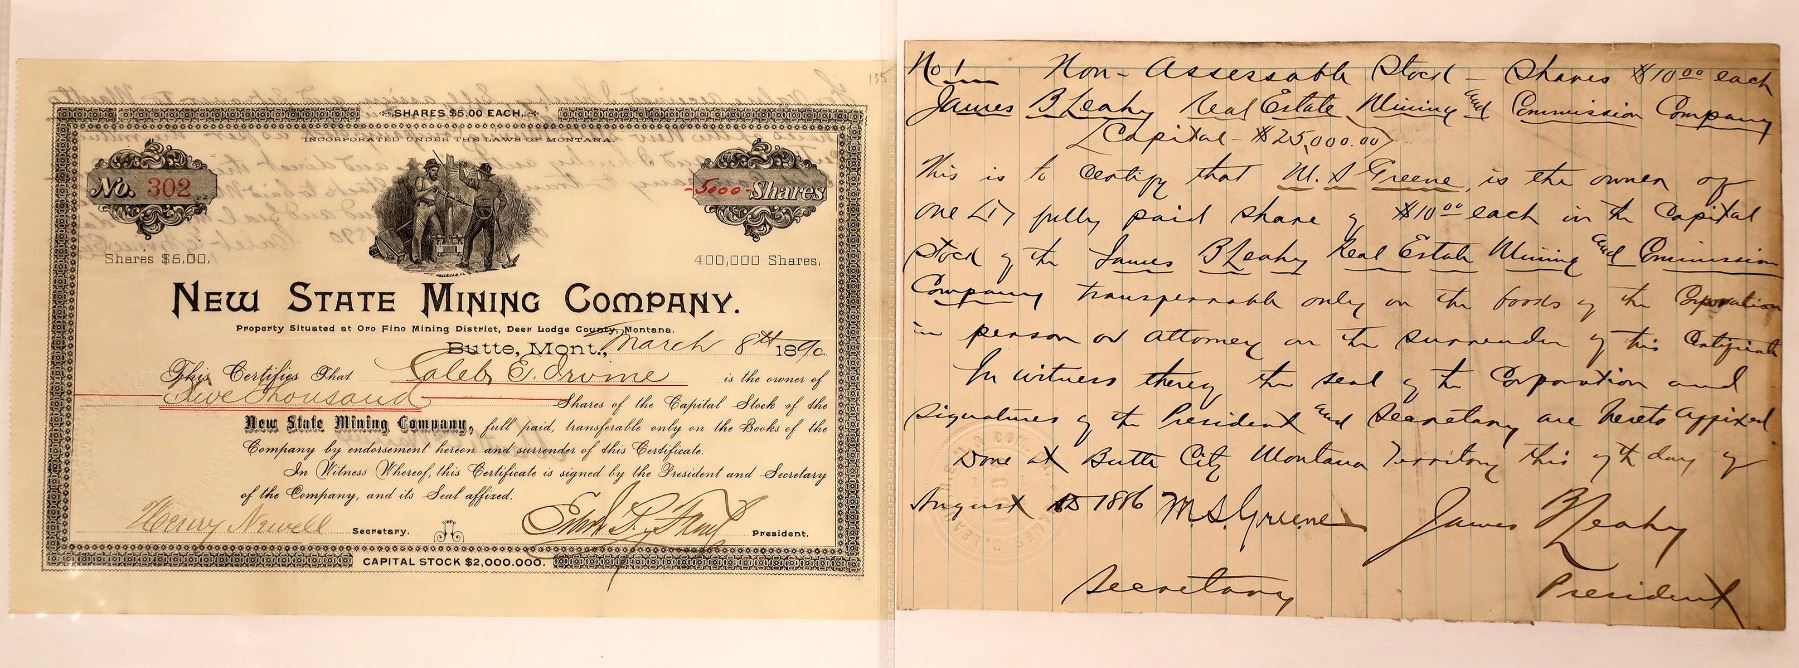 135
SHARES $5.00 EACH.
INCORPORATED UNDER THE LAWS OF MONTANA.
No. 302
-5000- Shares
Shares $5.00.
400,000 Shares.
NEW STATE MINING COMPANY.
Property Situated at Oro Fino Mining District, Deer Lodge County, Montana.
Butte, Mont., March 8th 1890
This Certifies That Caleb E. Irvine is the owner of
Five thousand Shares of the Capital Stock of the
New State Mining Company, full paid, transferable only on the Books of the
Company by endorsement hereon and surrender of this Certificate.
In Witness Whereof, this Certificate is signed by the President and Secretary
of the Company, and its Seal affixed.
Henry Newell Secretary.
President.
CAPITAL STOCK $2,000,000.
No 1 Non-Assessable Stock - Shares $10.00 each
James B Leahy Real Estate Mining and Commission Company
(Capital - $25,000.00)
This is to Certify that M. S Greene, is the owner of
one (1) fully paid share of $10.00 each in the Capital
Stock of the James B Leahy Real Estate Mining and Commission
Company transferrable only on the books of the Corporation
in person or attorney on the surrender of this Certificate
In witness thereof the seal of the Corporation and
signatures of the President and Secretary are hereto affixed
Done at Butte City Montana Territory this 7th day of
August 1886 M S. Greene James B Leahy
Secretary President